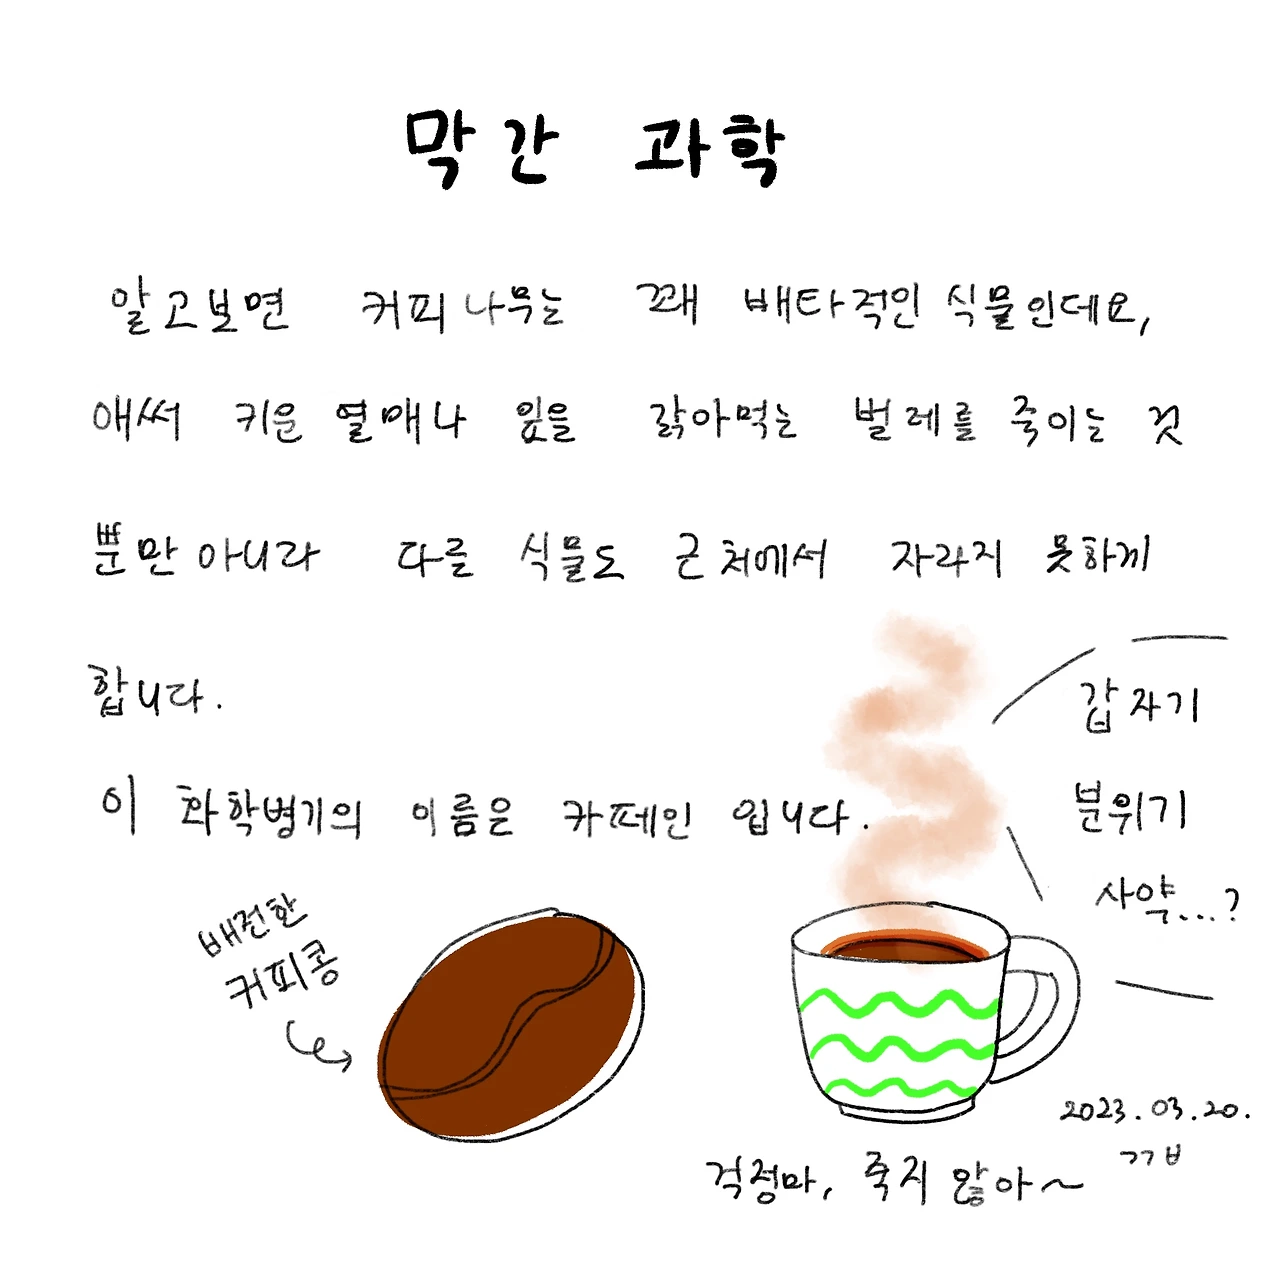 막간 과학
알고보면 커피나무는 꽤 배타적인 식물인데요,
애써 키운 열매나 잎을 갉아먹는 벌레를 죽이는 것
뿐만 아니라 다른 식물도 근처에서 자라지 못하게
합니다.
이 화학병기의 이름은 카페인 입니다.
갑자기
분위기
사약...?
배전한
커피콩
걱정마, 죽지 않아~
2023.03.20.
ㄱㄱㅂ